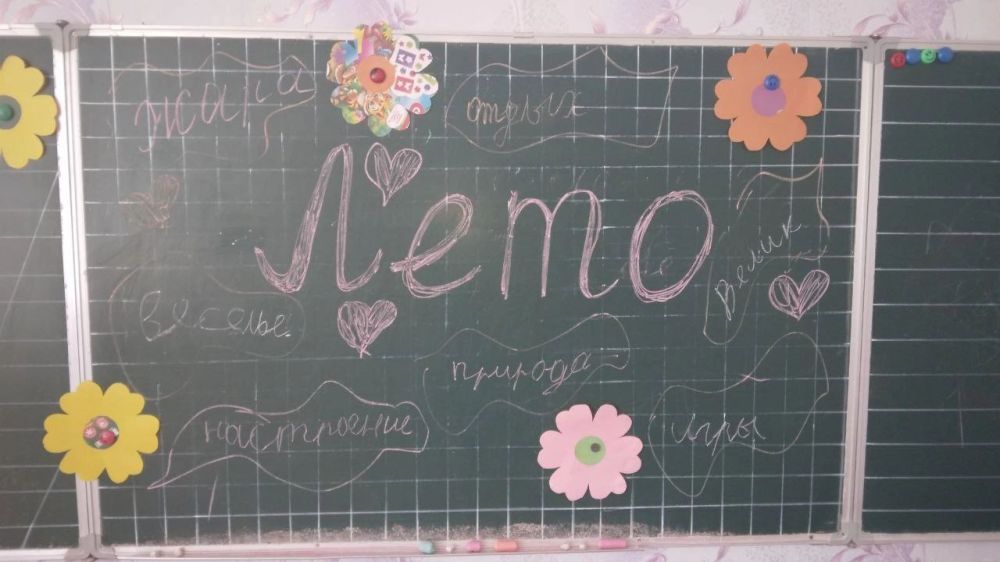 жара
отдых
Лето
Велик
веселье
природа
настроение
игры